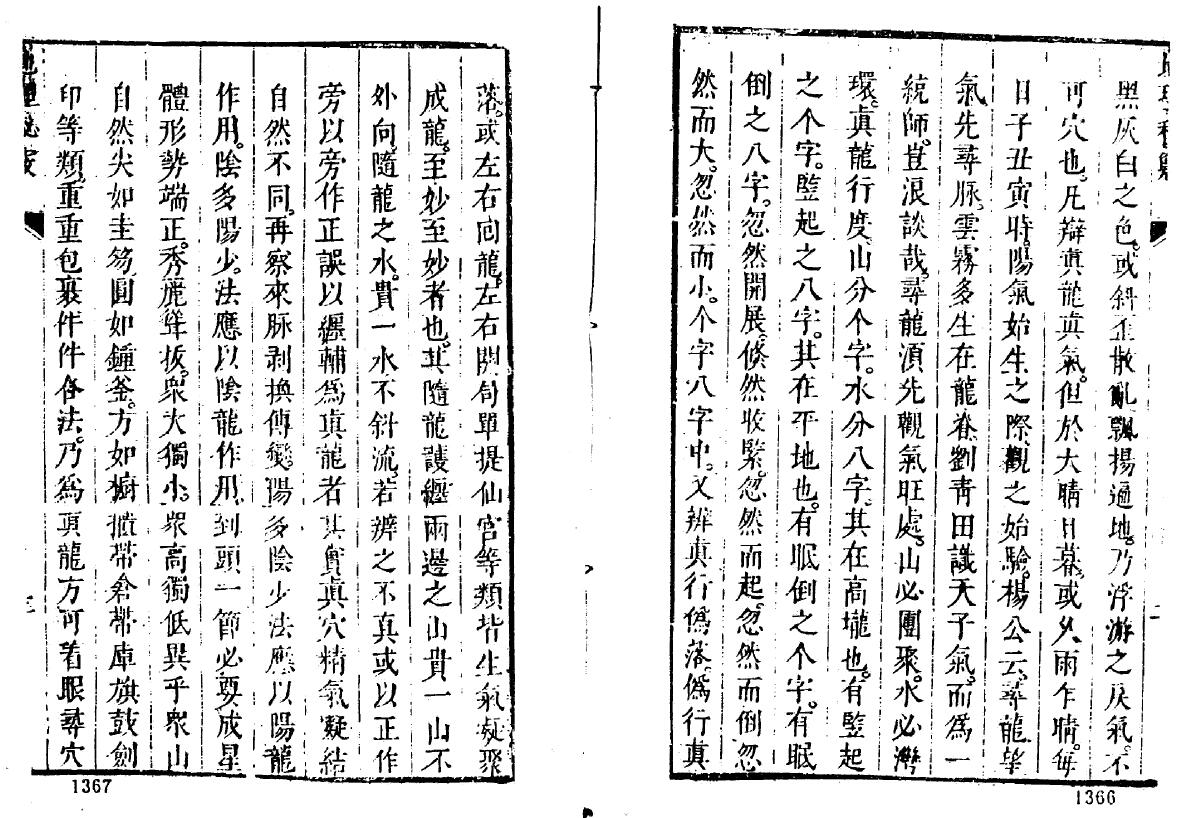 黑灰白之色。或斜歪散亂飄揚遍地。乃浮游之戾氣。不
可穴也。凡辯真龍真氣。但於大晴日暮。或久雨乍晴。每
日子丑寅時。陽氣始生之際。觀之始驗。楊公云。尋龍望
氣先尋脉。雲霧多生在龍脊。劉青田識天子氣。而為一
統師。豈浪談哉。尋龍須先觀氣旺處。山必團聚。水必灣
環。真龍行度。山分个字。水分八字。其在高壠也。有竪起
之个字。竪起之八字。其在平地也。有眠倒之个字。有眠
倒之八字。忽然開展。倏然收緊。忽然而起。忽然而倒。忽
然而大。忽然而小。个字八字中。又辨真行偽落。偽行真
1366
落。或左右囘龍。左右關局。單提仙宮等類。皆生氣凝聚
成龍。至妙至妙者也。其隨龍護纒。兩邊之山。貴一山不
外向。隨龍之水。貴一水不斜流。若辨之不真。或以正作
旁。以旁作正。誤以纒輔爲真龍者。其實真穴精氣凝結
自然不同。再察來脉剥換傳變。陽多陰少。法應以陽龍
作用。陰多陽少。法應以陰龍作用。到頭一節。必要成星
體。形勢端正。秀麗聳拔。衆大獨小。衆高獨低。異乎衆山
自然尖如圭笏。圓如鐘釜。方如橱櫃。帶倉帶庫。旗鼓劍
印等類。重重包裹。件件合法。乃爲真龍。方可着眼尋穴
1367